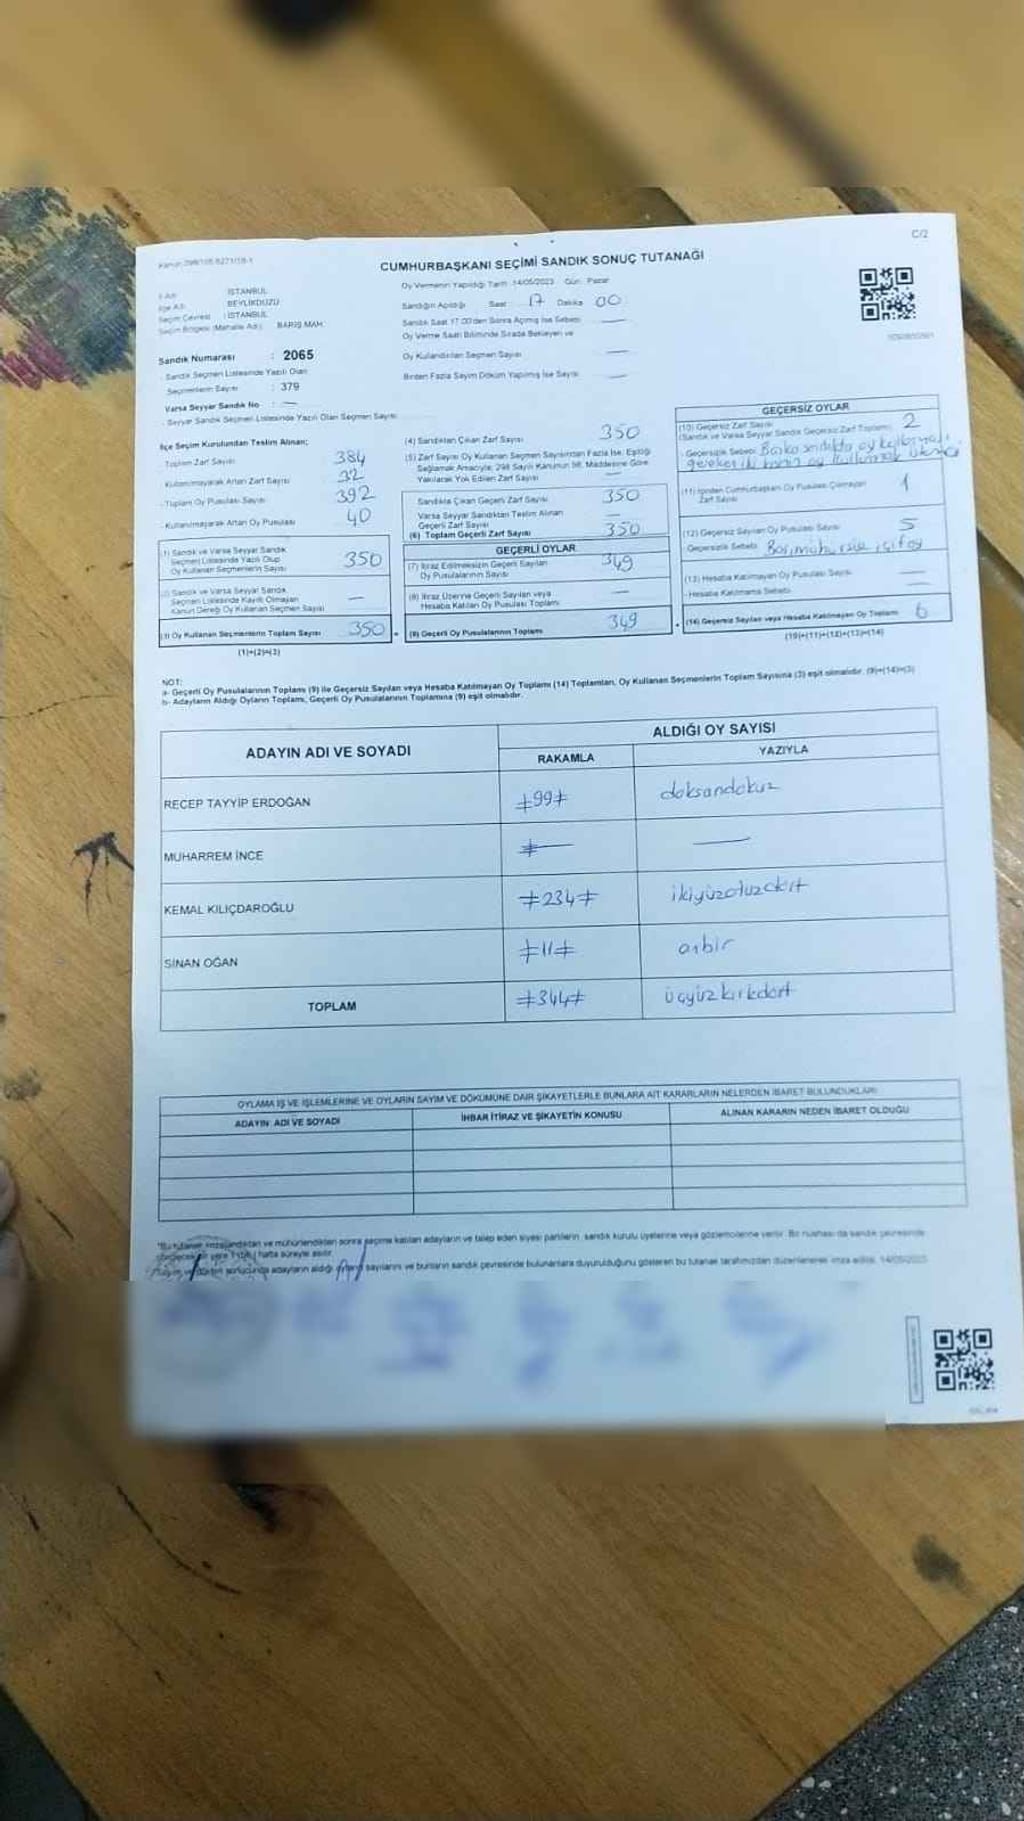 C/2
CUMHURBAŞKANI SEÇİMİ SANDIK SONUÇ TUTANAĞI
İli Adı : İSTANBUL
İlçe Adı : BEYLİKDÜZÜ
Seçim Çevresi : İSTANBUL
Seçim Bölgesi (Mahalle Adı) : BARIŞ MAH.
Oy Vermenin Yapıldığı Tarih : 14/05/2023 Gün : Pazar
Sandığın Açıldığı Saat : 17 Dakika 00
Sandık Saat 17.00'den Sonra Açılmış İse Sebebi —
Oy Verme Saati Bitiminde Sırada Bekleyen ve
Oy Kullandırılan Seçmen Sayısı —
Birden Fazla Sayım Döküm Yapılmış İse Sayısı —
Sandık Numarası : 2065
- Sandık Seçmen Listesinde Yazılı Olan
Seçmenlerin Sayısı : 379
Varsa Seyyar Sandık No : —
- Seyyar Sandık Seçmen Listesinde Yazılı Olan Seçmen Sayısı
İlçe Seçim Kurulundan Teslim Alınan;
- Toplam Zarf Sayısı 384
- Kullanılmayarak Artan Zarf Sayısı 32
- Toplam Oy Pusulası Sayısı 392
- Kullanılmayarak Artan Oy Pusulası 40
(1) Sandık ve Varsa Seyyar Sandık
Seçmen Listesinde Yazılı Olup
Oy Kullanan Seçmenlerin Sayısı 350
(2) Sandık ve Varsa Seyyar Sandık
Seçmen Listesinde Kayıtlı Olmayan
Kanun Gereği Oy Kullanan Seçmen Sayısı —
(3) Oy Kullanan Seçmenlerin Toplam Sayısı 350
(1)+(2)=(3)
(4) Sandıktan Çıkan Zarf Sayısı 350
(5) Zarf Sayısı Oy Kullanan Seçmen Sayısından Fazla İse, Eşitliği
Sağlamak Amacıyla, 298 Sayılı Kanunun 98. Maddesine Göre
Yakılarak Yok Edilen Zarf Sayısı —
Sandıkta Çıkan Geçerli Zarf Sayısı 350
Varsa Seyyar Sandıktan Teslim Alınan
Geçerli Zarf Sayısı —
(6) Toplam Geçerli Zarf Sayısı 350
GEÇERLİ OYLAR
(7) İtiraz Edilmeksizin Geçerli Sayılan
Oy Pusulalarının Sayısı 349
(8) İtiraz Üzerine Geçerli Sayılan veya
Hesaba Katılan Oy Pusulası Toplamı —
(9) Geçerli Oy Pusulalarının Toplamı 349
GEÇERSİZ OYLAR
(10) Geçersiz Zarf Sayısı
(Sandık ve Varsa Seyyar Sandık Geçersiz Zarf Toplamı) 2
- Geçersizlik Sebebi Başka sandıkta oy kullanması
gereken iki kişinin oy kullanmak istemesi
(11) İçinden Cumhurbaşkanı Oy Pusulası Çıkmayan
Zarf Sayısı 1
(12) Geçersiz Sayılan Oy Pusulası Sayısı 5
Geçersizlik Sebebi
(13) Hesaba Katılmayan Oy Pusulası Sayısı —
- Hesaba Katılmama Sebebi —
(14) Geçersiz Sayılan veya Hesaba Katılmayan Oy Toplamı 6
(10)+(11)+(12)+(13)=(14)
NOT:
a- Geçerli Oy Pusulalarının Toplamı (9) ile Geçersiz Sayılan veya Hesaba Katılmayan Oy Toplamı (14) Toplamları, Oy Kullanan Seçmenlerin Toplam Sayısına (3) eşit olmalıdır. (9)+(14)=(3)
b- Adayların Aldığı Oyların Toplamı, Geçerli Oy Pusulalarının Toplamına (9) eşit olmalıdır.
ADAYIN ADI VE SOYADI ALDIĞI OY SAYISI
RAKAMLA YAZIYLA
RECEP TAYYİP ERDOĞAN ≠99≠ doksandokuz
MUHARREM İNCE ≠— —
KEMAL KILIÇDAROĞLU ≠234≠ ikiyüzotuzdört
SİNAN OĞAN ≠11≠ onbir
TOPLAM ≠344≠ üçyüzkırkdört
OYLAMA İŞ VE İŞLEMLERİNE VE OYLARIN SAYIM VE DÖKÜMÜNE DAİR ŞİKAYETLERLE BUNLARA AİT KARARLARIN NELERDEN İBARET BULUNDUKLARI
ADAYIN ADI VE SOYADI İHBAR İTİRAZ VE ŞİKAYETİN KONUSU ALINAN KARARIN NEDEN İBARET OLDUĞU
*Bu tutanak imzalandıktan ve mühürlendikten sonra seçime katılan adayların ve talep eden siyasi partilerin sandık kurulu üyelerine veya gözlemcilerine verilir. Bir nüshası da sandık çevresinde
görülecek bir yere 1 (bir) hafta süreyle asılır.
sonucunda adayların aldığı sayılarını ve bunların sandık çevresinde bulunanlara duyurulduğunu gösteren bu tutanak tarafımızdan düzenlenerek imza edildi. 14/05/2023